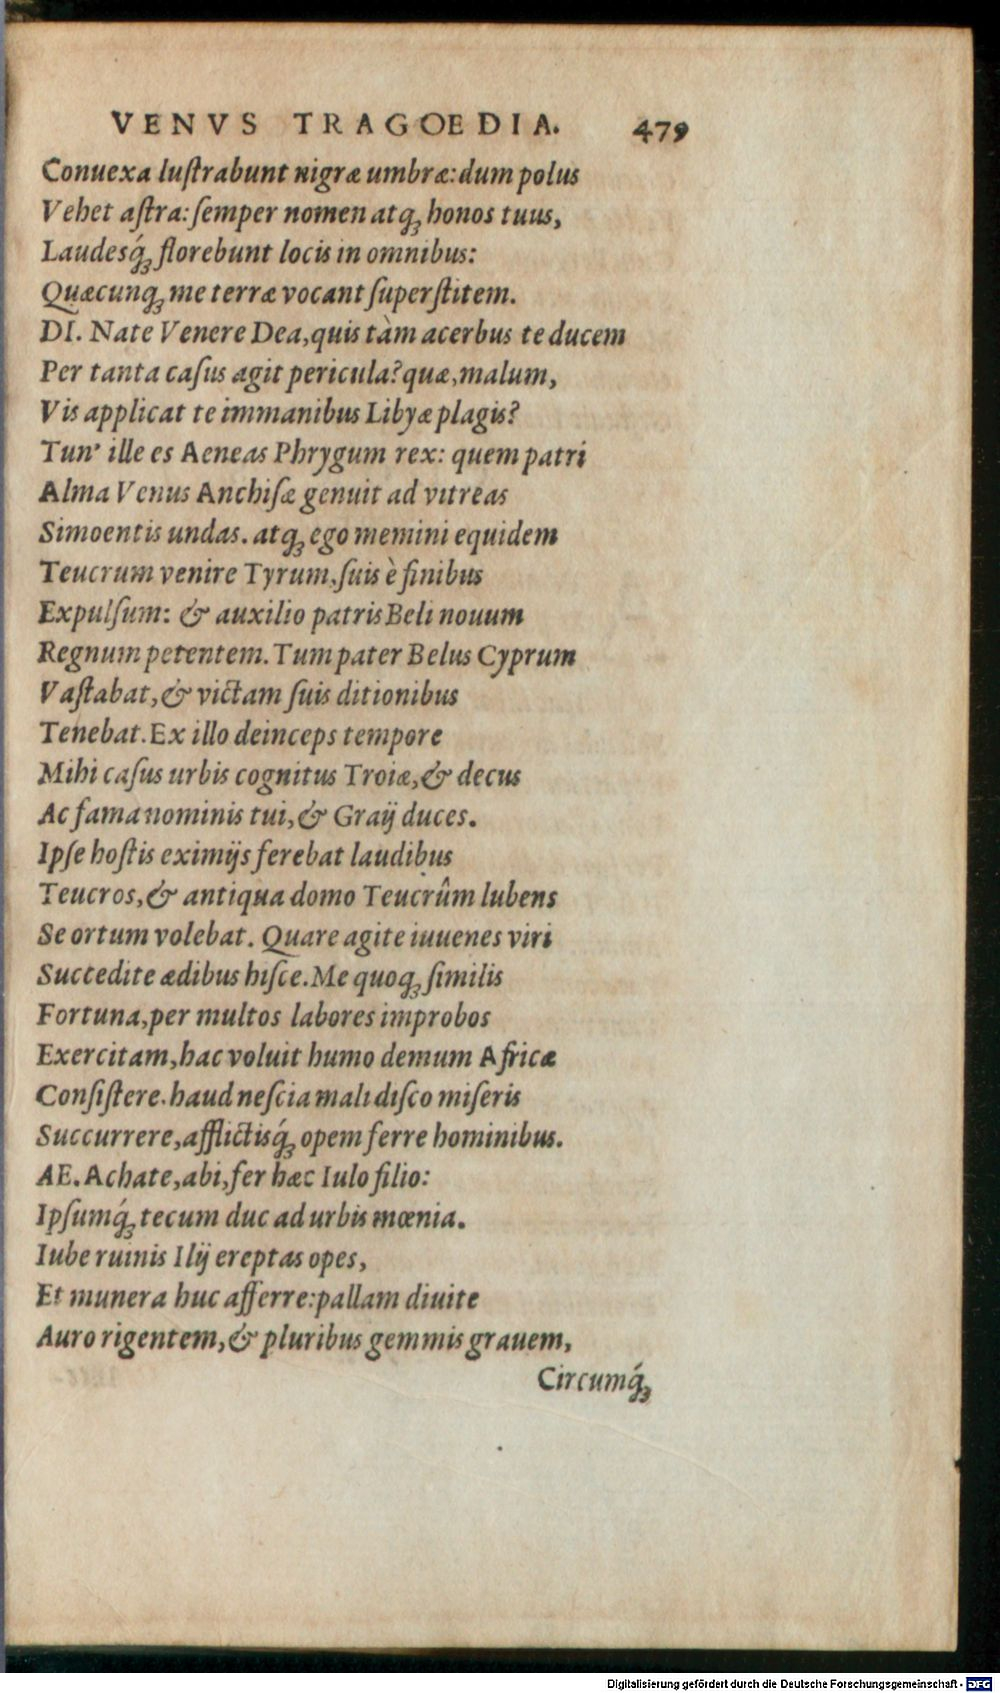 VENVS TRAGOEDIA. 479
Conuexa luſtrabunt nigræ umbræ: dum polus
Vehet aſtra: ſemper nomen atqꝫ honos tuus,
Laudesq́ꝫ florebunt locis in omnibus:
Quæcunqꝫ me terræ vocant ſuperſtitem.
DI. Nate Venere Dea, quis tàm acerbus te ducem
Per tanta caſus agit pericula? quæ, malum,
Vis applicat te immanibus Libyæ plagis?
Tun' ille es Aeneas Phrygum rex: quem patri
Alma Venus Anchiſæ genuit ad vitreas
Simoentis undas. atqꝫ ego memini equidem
Teucrum venire Tyrum, ſuis è finibus
Expulſum: & auxilio patris Beli nouum
Regnum petentem. Tum pater Belus Cyprum
Vaſtabat, & victam ſuis ditionibus
Tenebat. Ex illo deinceps tempore
Mihi caſus urbis cognitus Troiæ, & decus
Ac fama nominis tui, & Graij duces.
Ipſe hoſtis eximijs ferebat laudibus
Teucros, & antiqua domo Teucrûm lubens
Se ortum volebat. Quare agite iuuenes viri
Succedite ædibus hiſce. Me quoqꝫ ſimilis
Fortuna, per multos labores improbos
Exercitam, hac voluit humo demum Africæ
Conſiſtere. haud neſcia mali diſco miſeris
Succurrere, afflictisq́ꝫ opem ferre hominibus.
AE. Achate, abi, fer hæc Iulo filio:
Ipſumq́ꝫ tecum duc ad urbis mœnia.
Iube ruinis Ilij ereptas opes,
Et munera huc afferre: pallam diuite
Auro rigentem, & pluribus gemmis grauem,
Circumq́ꝫ
Digitalisierung gefördert durch die Deutsche Forschungsgemeinschaft - DFG